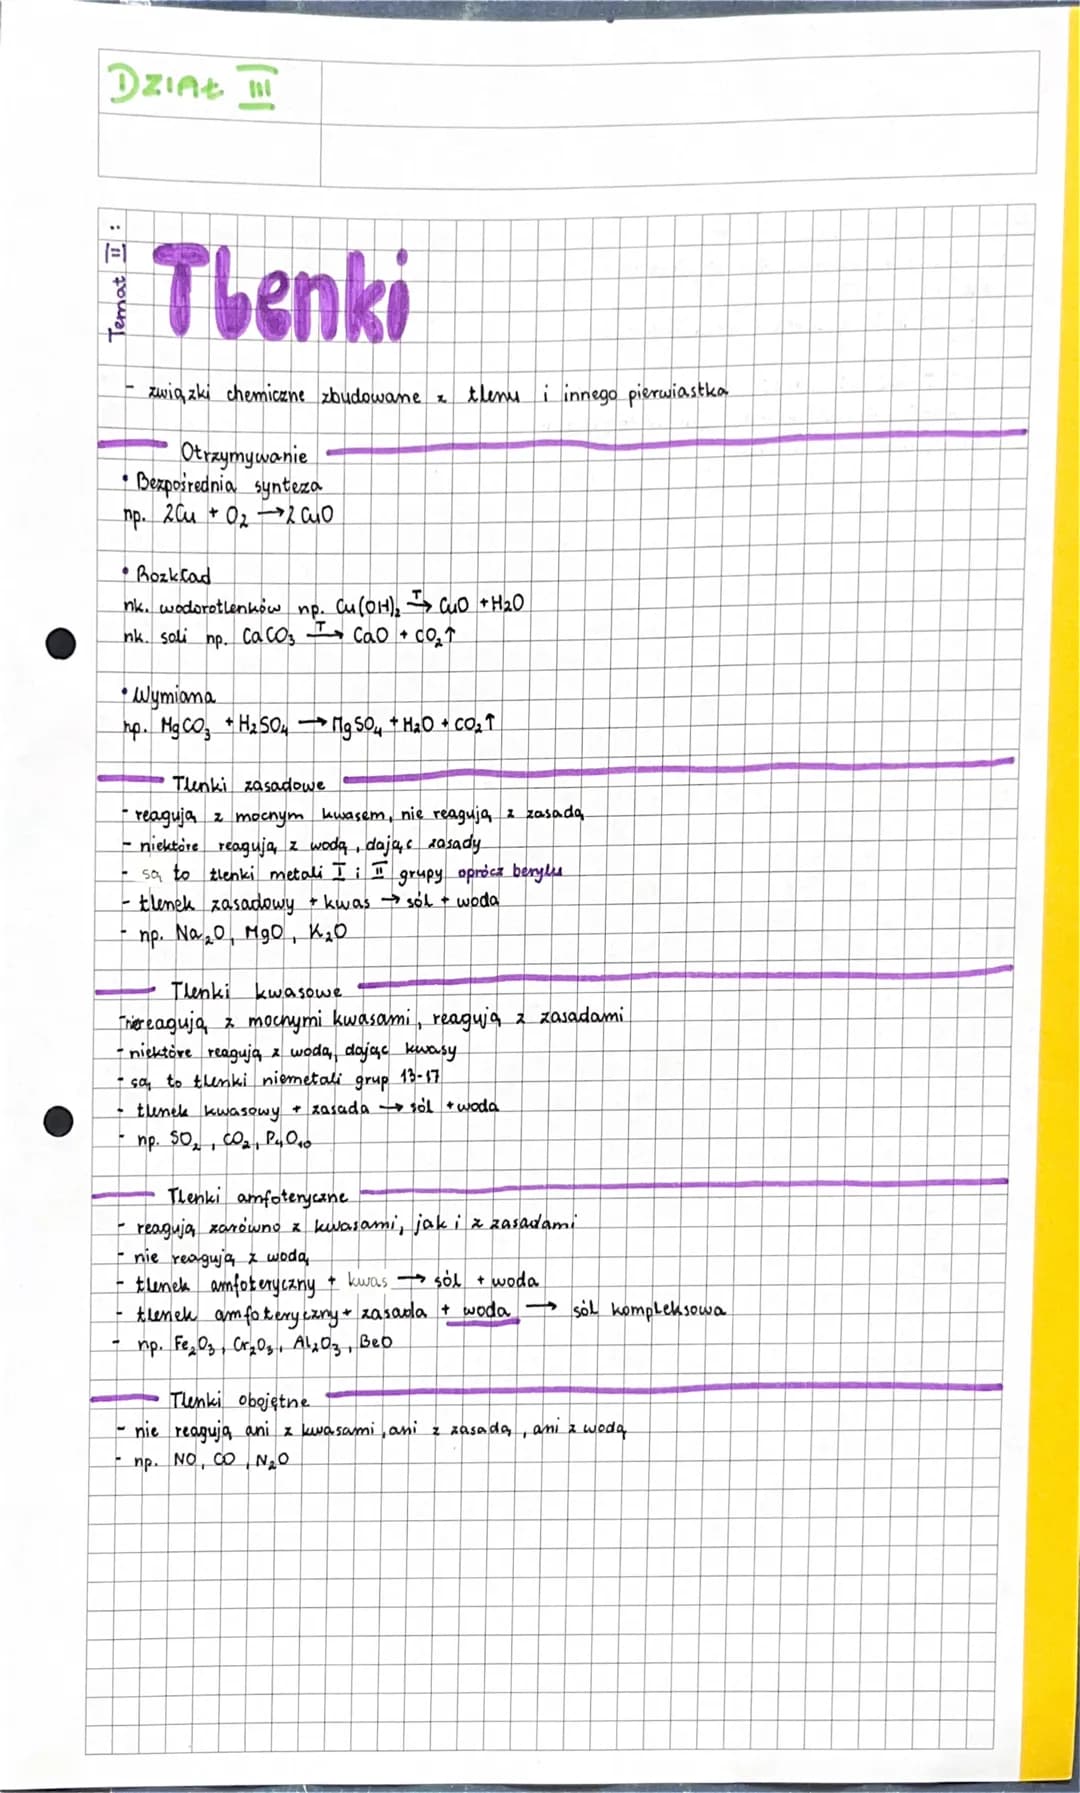 DZIAŁ III
Temat II:
Tlenki
- związki chemiczne zbudowane z tlenu i innego pierwiastka
Otrzymywanie
• Bezpośrednia synteza
np. 2Cu + O₂ → 2CuO
• Rozkład
nk. wodorotlenków np. Cu(OH)₂ →ᵀ CuO + H₂O
nk. soli np. CaCO₃ →ᵀ CaO + CO₂↑
• Wymiana
np. MgCO₃ + H₂SO₄ → MgSO₄ + H₂O + CO₂↑
Tlenki zasadowe
- reagują z mocnym kwasem, nie reagują z zasadą
- niektóre reagują z wodą, dając zasady
- są to tlenki metali I i II grupy oprócz berylu
- tlenek zasadowy + kwas → sól + woda
- np. Na₂O, MgO, K₂O
Tlenki kwasowe
- nie reagują z mocnymi kwasami, reagują z zasadami
- niektóre reagują z wodą, dając kwasy
- są to tlenki niemetali grup 13-17
- tlenek kwasowy + zasada → sól + woda
- np. SO₂, CO₂, P₄O₁₀
Tlenki amfoteryczne
- reagują zarówno z kwasami, jak i z zasadami
- nie reagują z wodą
- tlenek amfoteryczny + kwas → sól + woda
- tlenek amfoteryczny + zasada + woda → sól kompleksowa
- np. Fe₂O₃, Cr₂O₃, Al₂O₃, BeO
Tlenki obojętne
- nie reagują ani z kwasami, ani z zasadą, ani z wodą
- np. NO, CO, N₂O